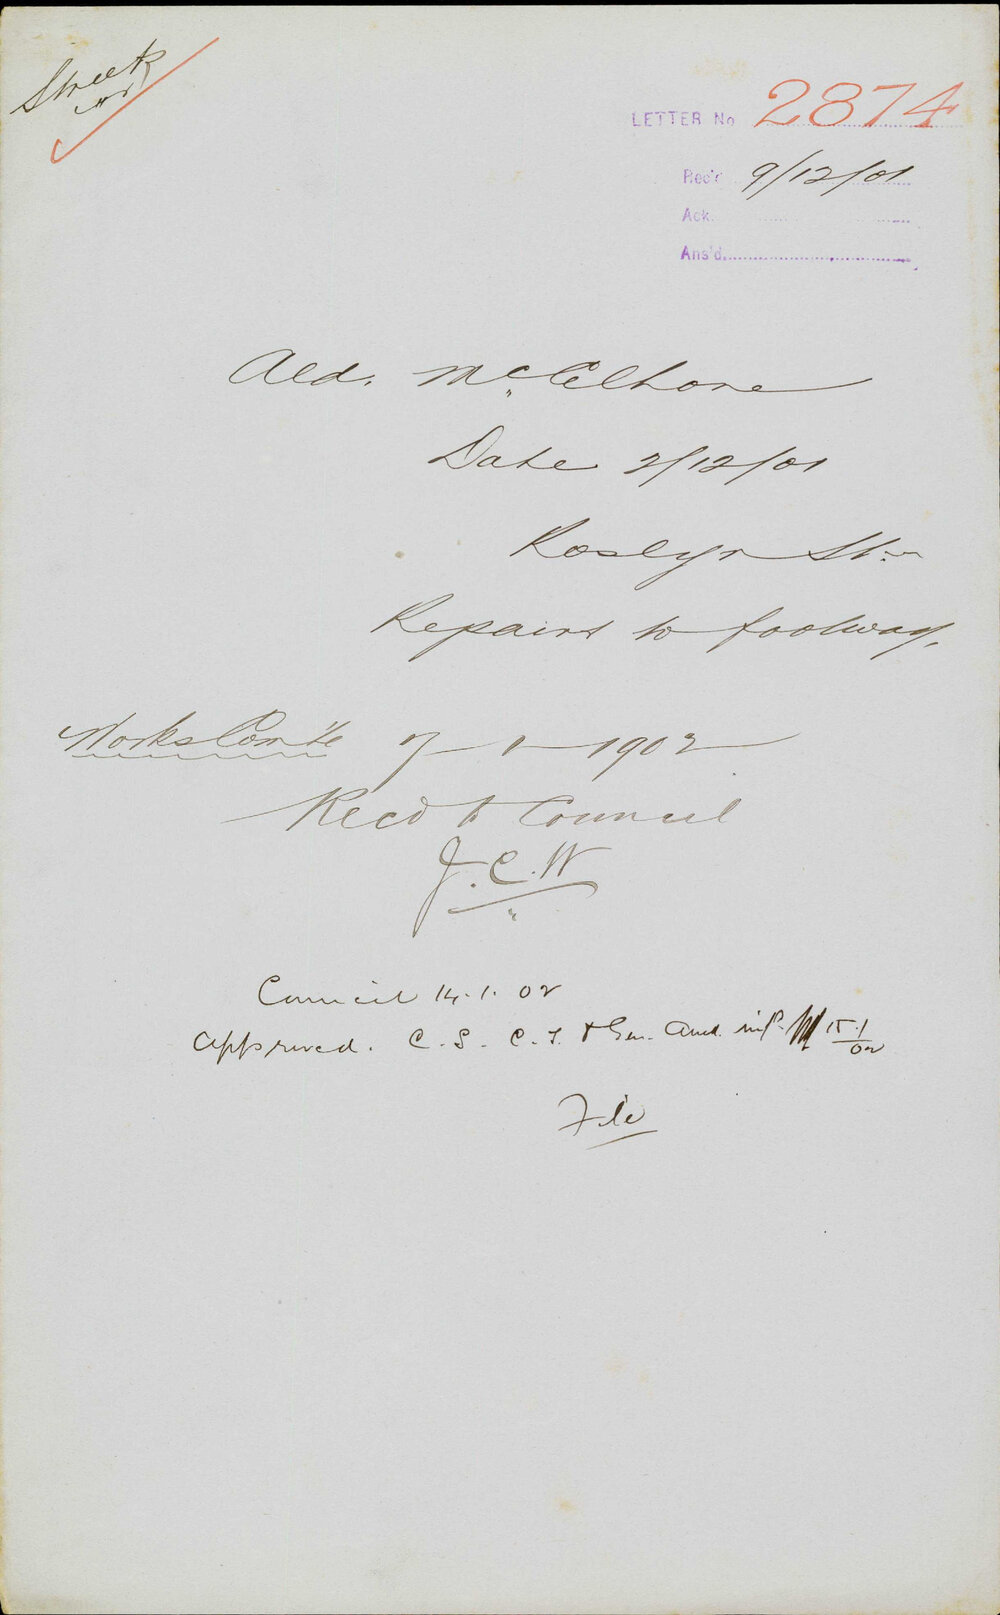 Street
LETTER No 2874
Rec'd 9/12/01
Ack.
Ans'd.
Ald. McElhone
Date 2/12/01
Roslyn St.
Repairs to footway.
Works Com'te 7-1-1902
Recd to Council
J.C.W
Council 14.1.02
Approved. C.S. C.T. & Gen. Aud. inf. 15.1/02
File